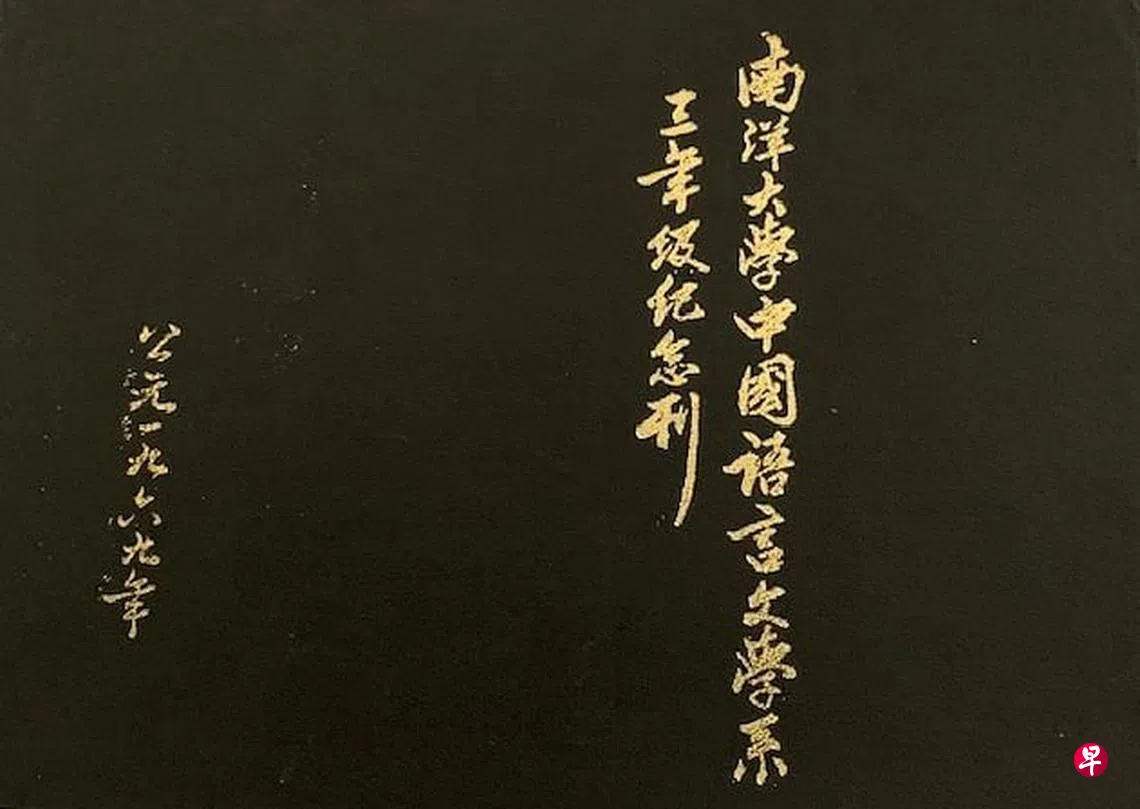 南洋大學中國語言文學系
三年级纪念刊
公元一九六九年
早